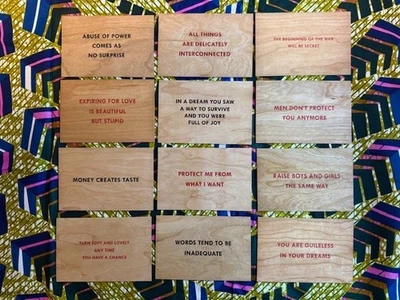 ABUSE OF POWER
COMES AS
NO SURPRISE
ALL THINGS
ARE DELICATELY
INTERCONNECTED
THE BEGINNING OF THE WAR
WILL BE SECRET
EXPIRING FOR LOVE
IS BEAUTIFUL
BUT STUPID
IN A DREAM YOU SAW
A WAY TO SURVIVE
AND YOU WERE
FULL OF JOY
MEN DON'T PROTECT
YOU ANYMORE
MONEY CREATES TASTE
PROTECT ME FROM
WHAT I WANT
RAISE BOYS AND GIRLS
THE SAME WAY
TURN SOFT AND LOVELY
ANY TIME
YOU HAVE A CHANCE
WORDS TEND TO BE
INADEQUATE
YOU ARE GUILELESS
IN YOUR DREAMS